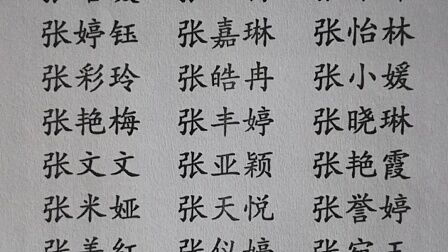 张婷钰 张嘉琳 张怡林
张彩玲 张皓冉 张小媛
张艳梅 张丰婷 张晓琳
张文文 张亚颖 张艳霞
张米娅 张天悦 张誉婷
张美红 张似婷 张宛玉